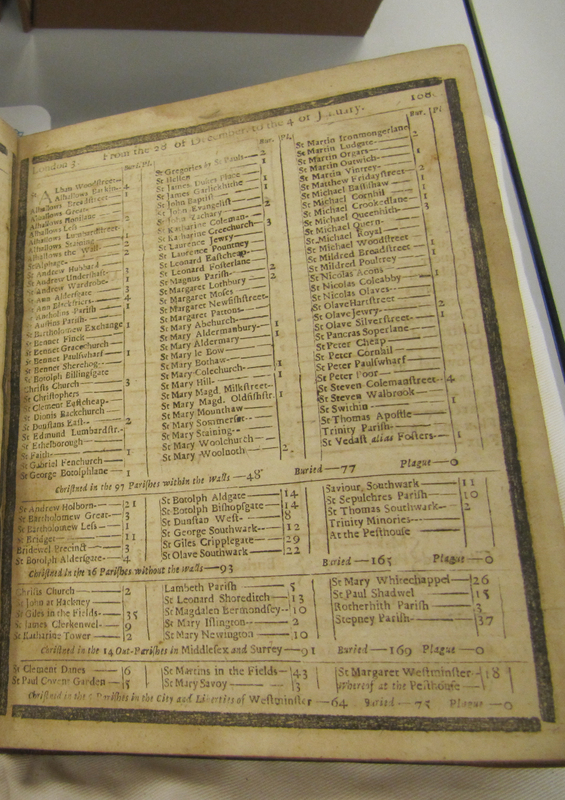 London 3. From the 28 of December, to the 4 of January. 100.
Bur. Pl.
Alban Woodstreet
Alhallows Barkin 4
Alhallows Breadstreet 1
Alhallows Great
Alhallows Honilane
Alhallows Less
Alhallows Lumbardstreet
Alhallows Staining
Alhallows the Wall
St Alphage
St Andrew Hubbard
St Andrew Undershaft
St Andrew Wardrobe
St Ann Aldersgate
St Ann Blackfriers 4
St Antholins Parish
St Austins Parish
St Bartholomew Exchange 1
St Bennet Finck
St Bennet Gracechurch
St Bennet Paulswharf 1
St Bennet Sherehog
St Botolph Billingsgate
Christs Church 3
St Christophers
St Clement Eastcheap
St Dionis Backchurch
St Dunstan East 2
St Edmund Lumbardstr.
St Ethelborough
St Faith 1
St Gabriel Fenchurch
St George Botolphlane 1
Bur. Pl.
St Gregories by St Pauls 2
St Hellen 1
St James Dukes Place 1
St James Garlickhithe 1
St John Baptist
St John Evangelist
St John Zachary
St Katharine Coleman
St Katharine Creechurch 3
St Laurence Jewry
St Laurence Pountney
St Leonard Eastcheap
St Leonard Fosterlane
St Magnus Parish
St Margaret Lothbury 2
St Margaret Moses
St Margaret Newfishstreet
St Margaret Pattons
St Mary Abchurch
St Mary Aldermanbury 1
St Mary Aldermary
St Mary le Bow
St Mary Bothaw
St Mary Colechurch
St Mary Hill 1
St Mary Magd. Milkstreet
St Mary Magd. Oldfishstr. 1
St Mary Mounthaw
St Mary Sommerset
St Mary Staining
St Mary Woolchurch
St Mary Woolnoth 2
Bur. Pl.
St Martin Ironmongerlane
St Martin Ludgate
St Martin Orgars
St Martin Outwich
St Martin Vintrey
St Matthew Fridaystreet
St Michael Bassishaw
St Michael Cornhil
St Michael Crookedlane
St Michael Queenhith
St Michael Quern
St Michael Royal
St Michael Woodstreet
St Mildred Breadstreet
St Mildred Poultrey
St Nicolas Acons
St Nicolas Coleabby
St Nicolas Olaves
St Olave Hartstreet 2
St Olave Jewry
St Olave Silverstreet 1
St Pancras Soperlane
St Peter Cheap
St Peter Cornhil
St Peter Paulswharf
St Peter Poor
St Steven Colemanstreet 4
St Steven Walbrook
St Swithin 1
St Thomas Apostle
Trinity Parish
St Vedast alias Fosters 1
Christned in the 97 Parishes within the Walls 48 Buried 77 Plague 0
St Andrew Holborn 21
St Bartholomew Great 3
St Bartholomew Less
St Bridget 11
Bridewel Precinct 3
St Botolph Aldersgate 4
St Botolph Aldgate 14
St Botolph Bishopsgate 14
St Dunstan West 8
St George Southwark 12
St Giles Cripplegate 29
St Olave Southwark 22
Saviour Southwark 11
St Sepulchres Parish 10
St Thomas Southwark 2
Trinity Minories
At the Pesthouse
Christned in the 16 Parishes without the Walls 93 Buried 165 Plague 0
Christs Church 2
St John at Hackney
St Giles in the Fields 35
St James Clerkenwel 9
St Katharine Tower 2
Lambeth Parish 5
St Leonard Shoreditch 13
St Magdalen Bermondsey 10
St Mary Islington 2
St Mary Newington 10
St Mary Whitechappel 26
St Paul Shadwel 15
Rotherhith Parish 3
Stepney Parish 37
Christned in the 14 Out-Parishes in Middlesex and Surrey 91 Buried 169 Plague 0
St Clement Danes 16
St Paul Covent Garden 5
St Martins in the Fields 43
St Mary Savoy 3
St Margaret Westminster 18
Whereof at the Pesthouse
Christned in the 5 Parishes in the City and Liberties of Westminster 64 Buried 75 Plague 0